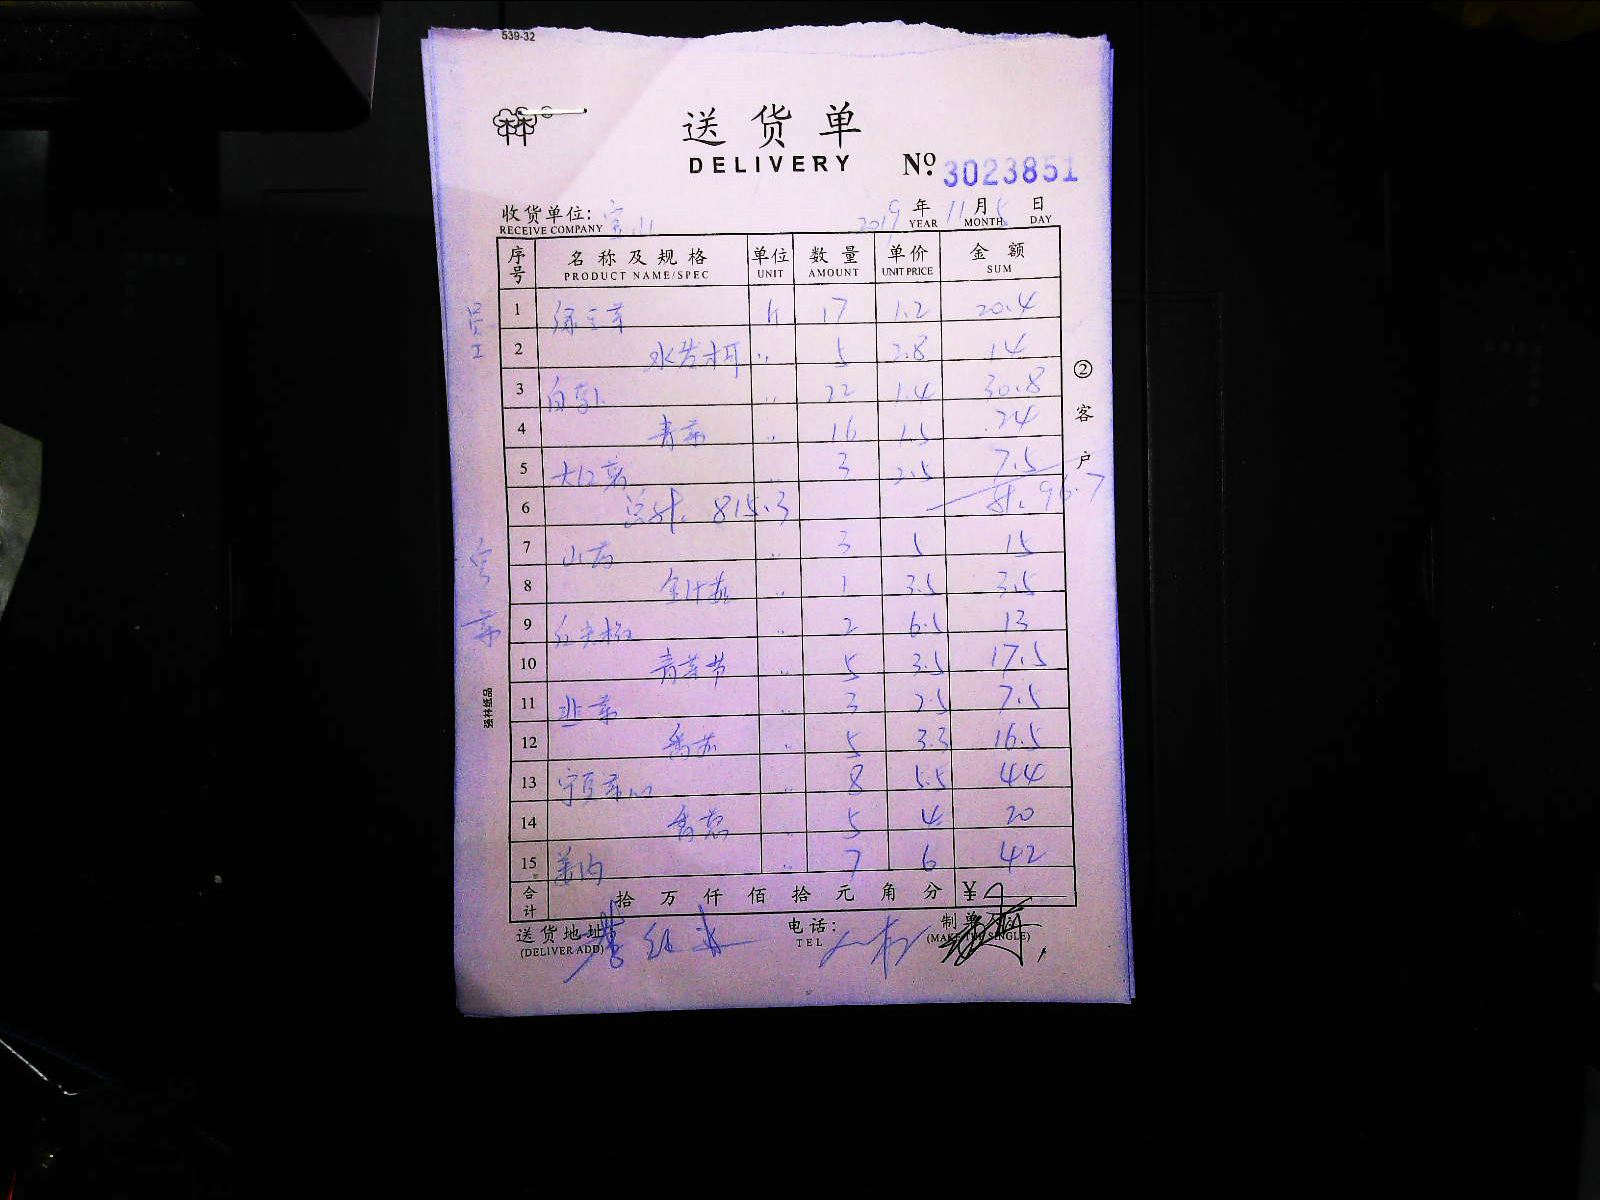 539-32
送货单
DELIVERY
No. 3023851
收货单位: 宝山 2019 年 11 月 5 日
RECEIVE COMPANY YEAR MONTH DAY
序号 名称及规格 单位 数量 单价 金额
PRODUCT NAME/SPEC UNIT AMOUNT UNIT PRICE SUM
1 17 1.2 20.4
员工
2 水发木耳 〃 5 2.8 14
3 白 〃 22 1.4 30.8
4 青菜 〃 16 1.5 24
5 大 〃 3 2.5 7.5
②客户
6 总计: 815.3 计: 96.7
7 山药 〃 3 5 15
8 金针菇 〃 1 3.5 3.5
9 红尖椒 〃 2 6.5 13
10 〃 5 3.5 17.5
11 韭菜 〃 3 2.5 7.5
12 〃 5 3.3 16.5
13 〃 8 5.5 44
14 香葱 〃 5 4 20
15 姜 〃 7 6 42
强林纸品
合计 拾 万 仟 佰 拾 元 角 分 ¥
送货地址 电话: 制单
(DELIVER ADD) TEL (MAKE THE SINGLE)